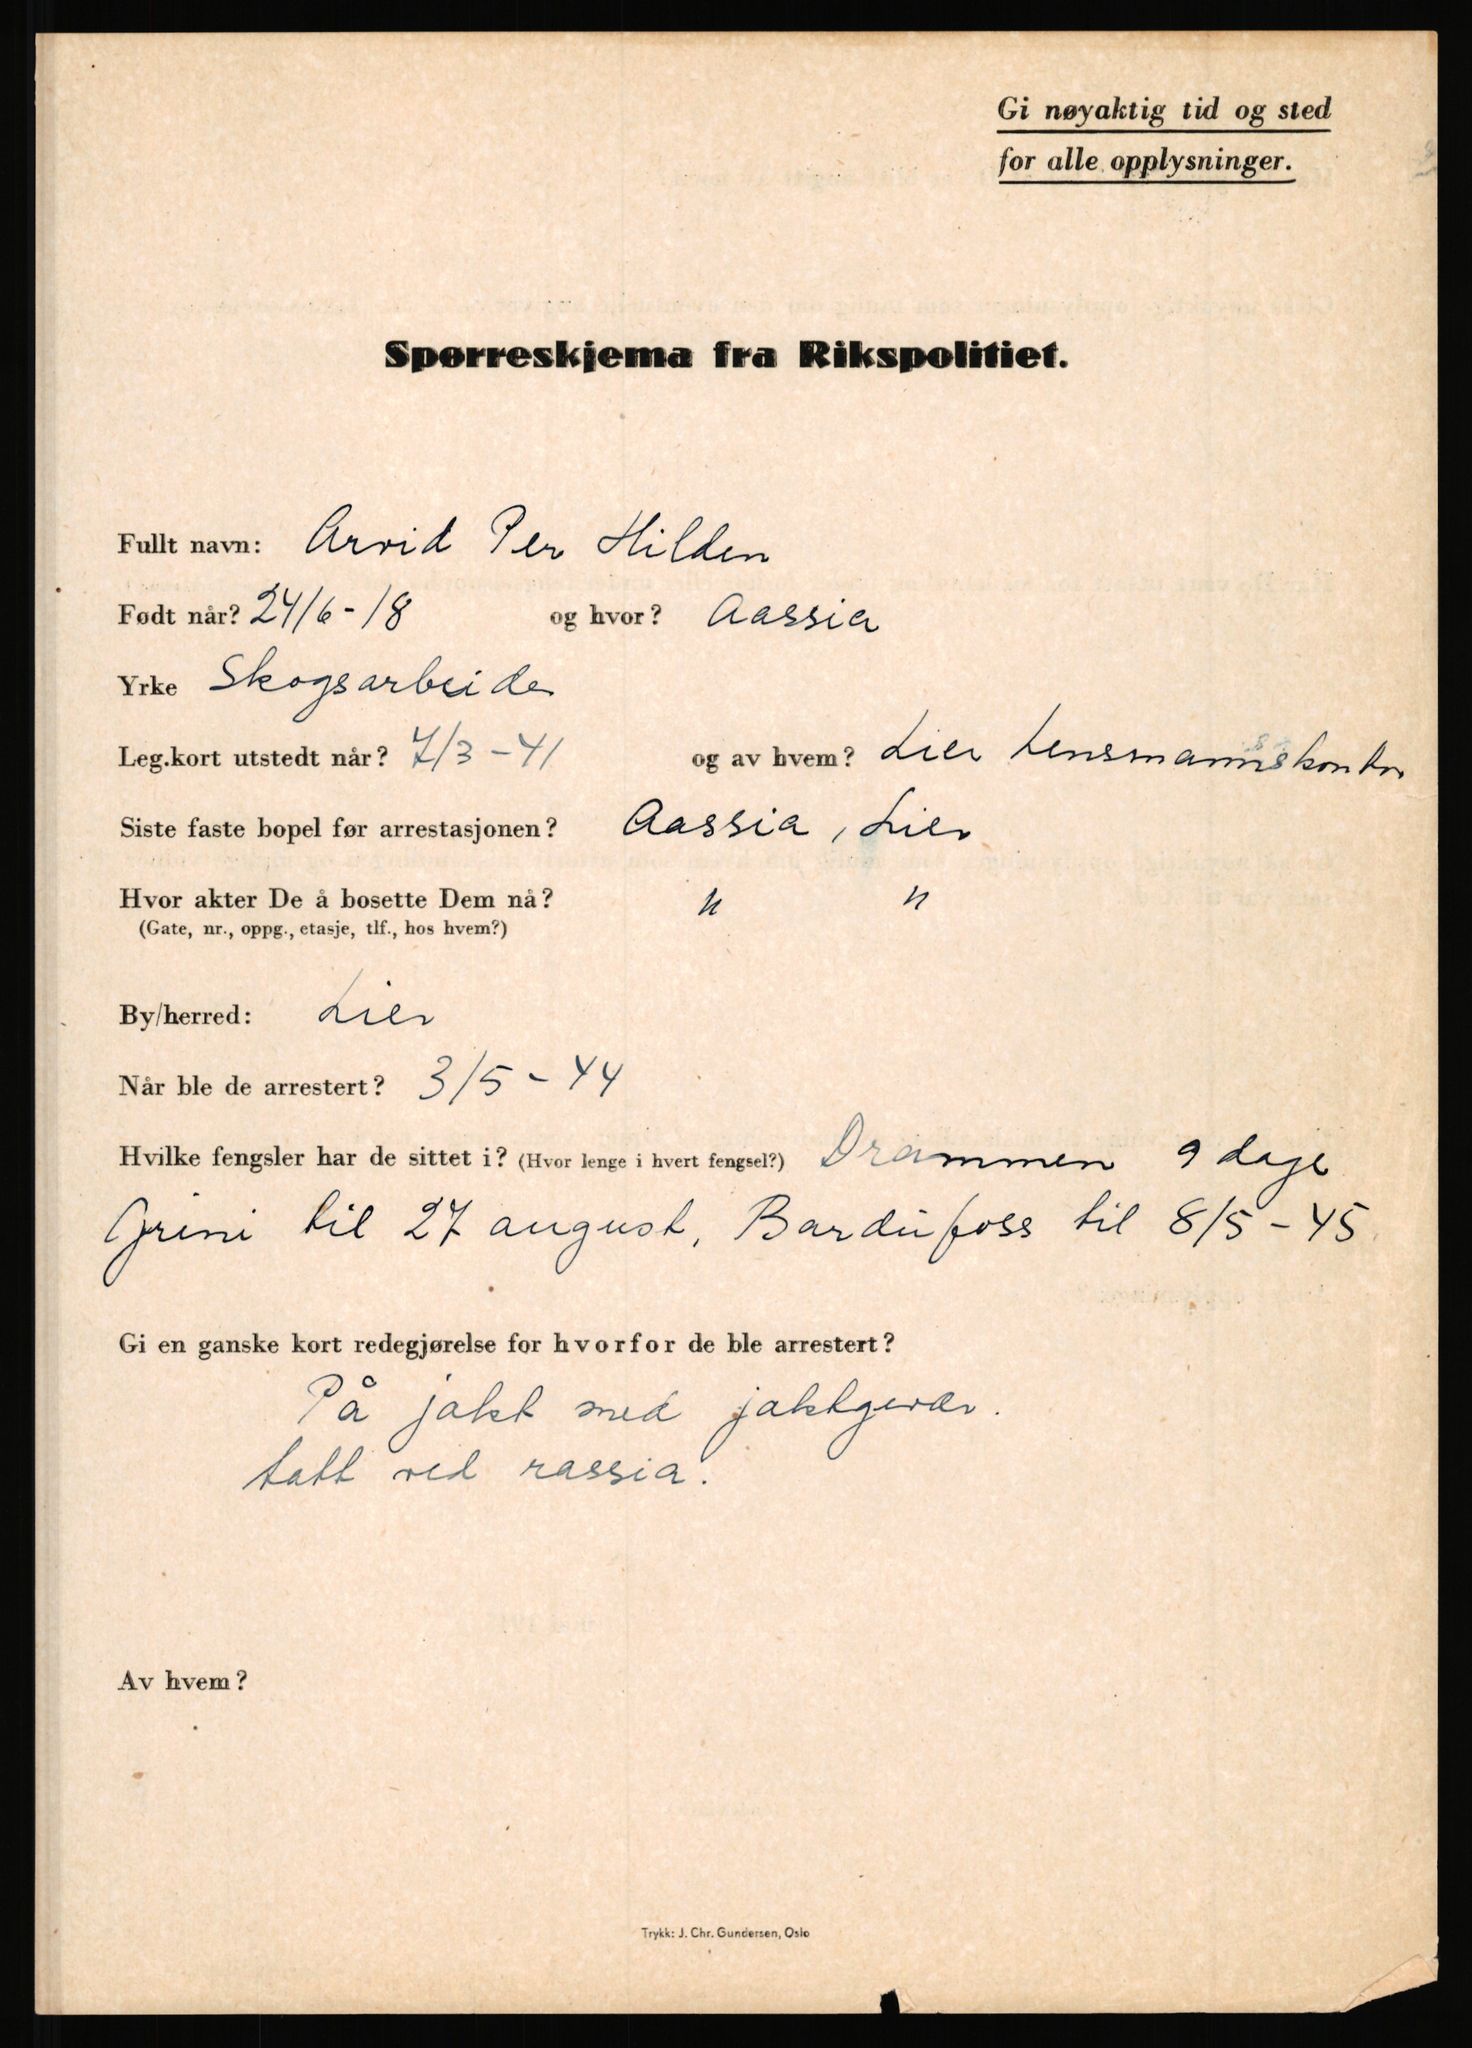 Gi nøyaktig tid og sted
for alle opplysninger.
Spørreskjema fra Rikspolitiet.
Fullt navn: Arvid Per Hilden
Født når? 24/6-18 og hvor? Aassia
Yrke Skogsarbeider
Leg.kort utstedt når? 7/3-41 og av hvem? Lier Lensmannskontor
Siste faste bopel før arrestasjonen? Aassia, Lier
Hvor akter De å bosette Dem nå? " "
(Gate, nr., oppg., etasje, tlf., hos hvem?)
By/herred: Lier
Når ble de arrestert? 3/5-44
Hvilke fengsler har de sittet i? (Hvor lenge i hvert fengsel?) Drammen 9 dage
Grini til 27 august, Bardufoss til 8/5-45
Gi en ganske kort redegjørelse for hvorfor de ble arrestert?
På jakt med jaktgevær.
tatt ved rassia.
Av hvem?
Trykk: J. Chr. Gundersen, Oslo